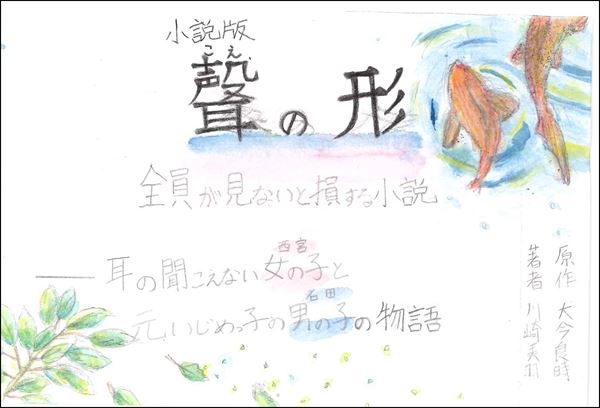 小説版
こえ
聲の形
全員が見ないと損する小説
西宮
――耳の聞こえない女の子と
石田
元いじめっ子の男の子の物語
原作 大今良時
著者 川崎美羽